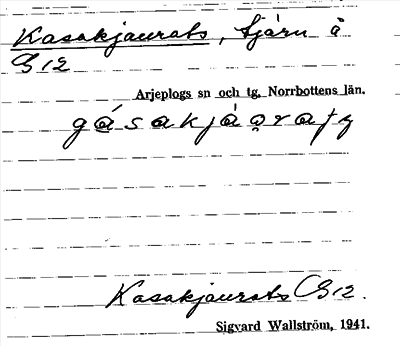 Kasakjaurats, tjärn å
G 12
Arjeplogs sn och tg. Norrbottens län.
Kasakjaurats G 12.
Sigvard Wallström, 1941.